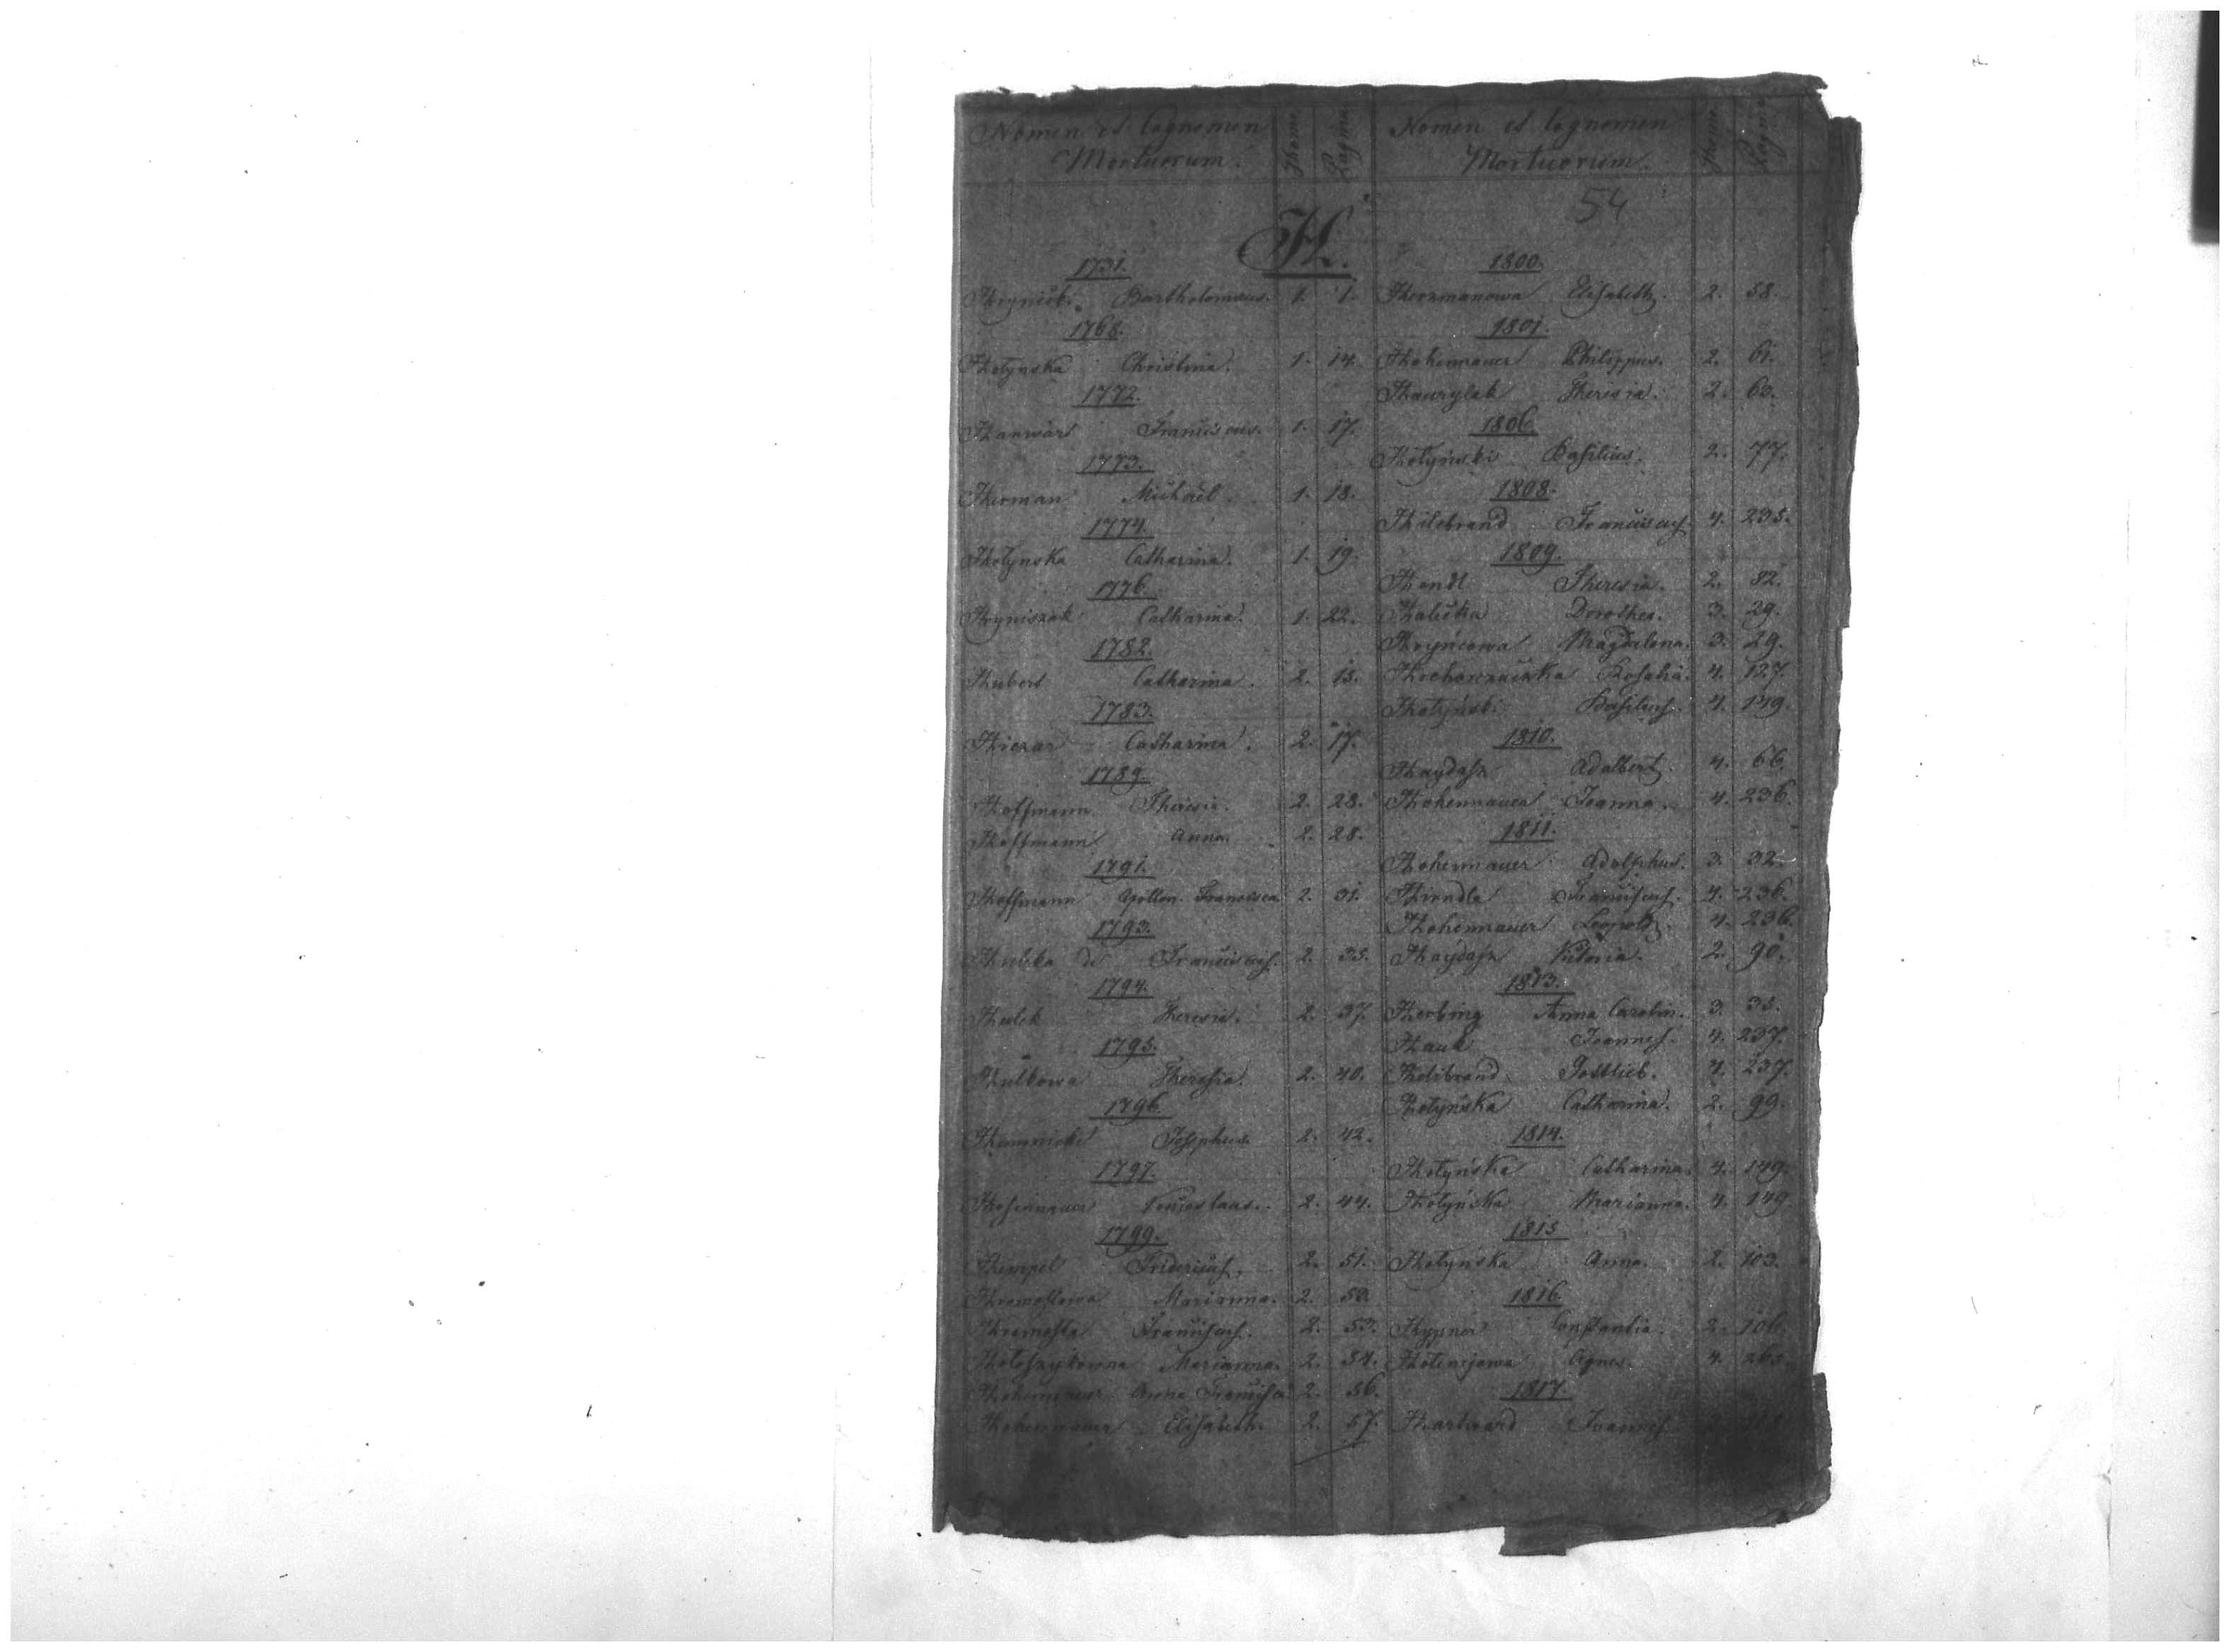 Nomen et Cognomen
Mortuorum.
Thomi
Pagina
Nomen et Cognomen
Mortuorum.
Thomi
Pagina
54
H.
1731.
Hrynicki Bartholomaeus. 1. 1.
1768.
Hotynska Christina. 1. 14.
1772.
Franciscus. 1. 17.
1773.
Herman Michael. 1. 18.
1774.
Hotynska Catharina. 1. 19.
1776.
Hryniszak Catharina. 1. 22.
1782.
Hubert Catharina. 2. 15.
1783.
Catharina. 2. 17.
1789.
Hoffmann Theresia. 2. 28.
Hoffmann Anna. 2. 28.
1791.
Hoffmann Apollon. Francisca 2. 31.
1793.
de Franciscus. 2. 35.
1794.
Theresia. 2. 37.
1795.
Hulkowa Theresia. 2. 40.
1796.
Josephus. 2. 42.
1797.
2. 44.
1799.
Hempel Fridericus. 2. 51.
Marianna. 2. 53.
Franciscus. 2. 53.
Marianna. 2. 54.
Hohennauer Anna Francisca 2. 56.
Hohennauer Elisabeth. 2. 57.
1800.
Herzmanowa Elisabeth. 2. 58.
1801.
Hohennauer Philippus. 2. 61.
Hawrylak Theresia. 2. 63.
1806.
Hotyński Basilius. 2. 77.
1808.
Hilebrand Franciscus. 4. 235.
1809.
Hendl Theresia. 2. 82.
Halicka Dorothea. 3. 29.
Hryńcowa Magdalena. 3. 29.
Rosalia. 4. 127.
Hotyński Basilius. 4. 149.
1810.
Haydasz Adalbert. 4. 66.
Hohennauer Joanna. 4. 236.
1811.
Hohennauer Adolphus. 3. 32.
Franciscus. 4. 236.
Hohennauer Leopold. 4. 236.
Haydasz Victoria. 2. 90.
1813.
Herbing Anna Carolin. 3. 35.
Hauk Joannes. 4. 237.
Helibrand Gottlieb. 4. 237.
Hotyńska Catharina. 2. 99.
1814.
Hotyńska Catharina. 4. 149.
Hotyńska Marianna. 4. 149.
1815
Hotyńska Anna. 2. 103.
1816.
Hyppner Constantia. 2. 106.
Agnes. 4.
1817.
Hartward Joannes.